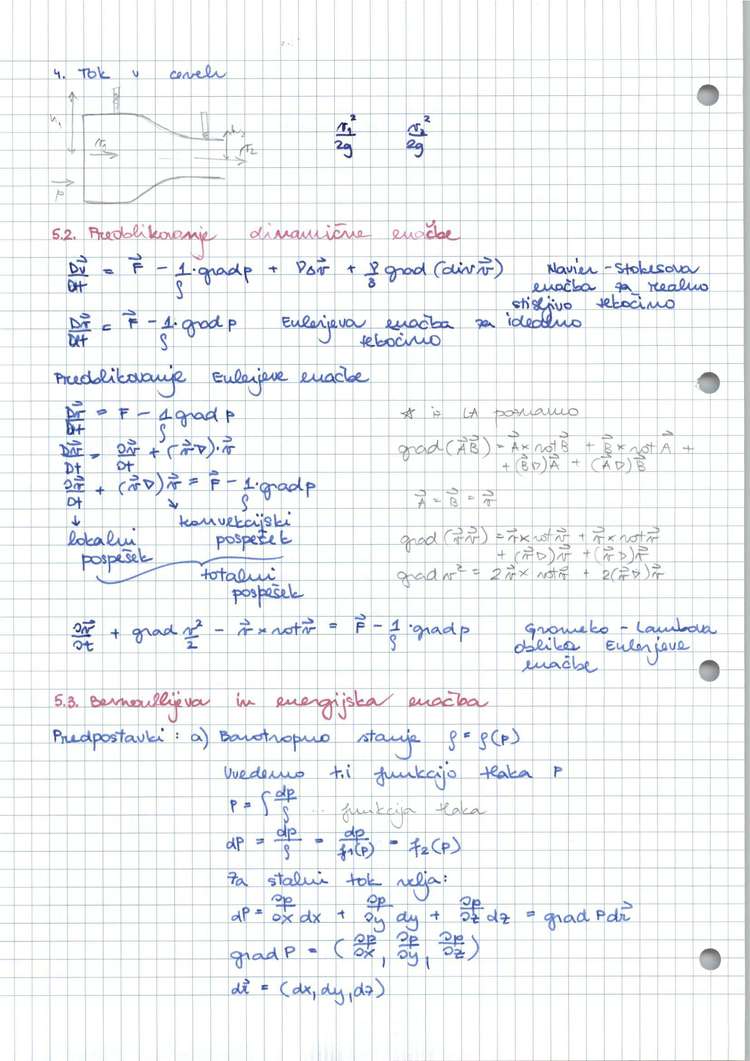 4. Tok v cevch
h₁
v₁
h₂
v₂
P
v₁²/2g v₂²/2g
5.2. Preoblikovanje dinamične enačbe
Dv⃗/Dt = F⃗ - 1/ρ · grad p + νΔv⃗ + ν/3 grad (div v⃗) Navier-Stokesova
enačba za realno
stisljivo tekočino
Dv⃗/Dt = F⃗ - 1/ρ · grad p Eulerjeva enačba za idealno
tekočino
Preoblikovanje Eulerjeve enačbe
Dv⃗/Dt = F - 1/ρ grad p * iz LA poznamo
Dv⃗/Dt = ∂v⃗/∂t + (v⃗∇)·v⃗ grad(A⃗B⃗) = A⃗ × rot B⃗ + B⃗ × rot A⃗ +
+ (B⃗∇)A⃗ + (A⃗∇)B⃗
∂v⃗/∂t + (v⃗∇)v⃗ = F⃗ - 1/ρ · grad p A⃗ = B⃗ = v⃗
↓ lokalni pospešek
↘ konvekcijski pospešek
totalni pospešek
grad (v⃗v⃗) = v⃗ × rot v⃗ + v⃗ × rot v⃗
+ (v⃗∇)v⃗ + (v⃗∇)v⃗
grad v² = 2v⃗ × rot v⃗ + 2(v⃗∇)v⃗
∂v⃗/∂t + grad v²/2 - v⃗ × rot v⃗ = F⃗ - 1/ρ · grad p Gromeko-Lambova
oblika Eulerjeve
enačbe
5.3. Bernoullijeva in energijska enačba
Predpostavki: a) Barotropno stanje ρ = ρ(p)
Uvedemo t.i funkcijo tlaka P
P = ∫ dp/ρ ... funkcija tlaka
dP = dp/ρ = dp/f₁(p) = f₂(p)
Za stalni tok velja:
dP = ∂p/∂x dx + ∂p/∂y dy + ∂p/∂z dz = grad P dr⃗
grad P = (∂p/∂x, ∂p/∂y, ∂p/∂z)
dr⃗ = (dx, dy, dz)